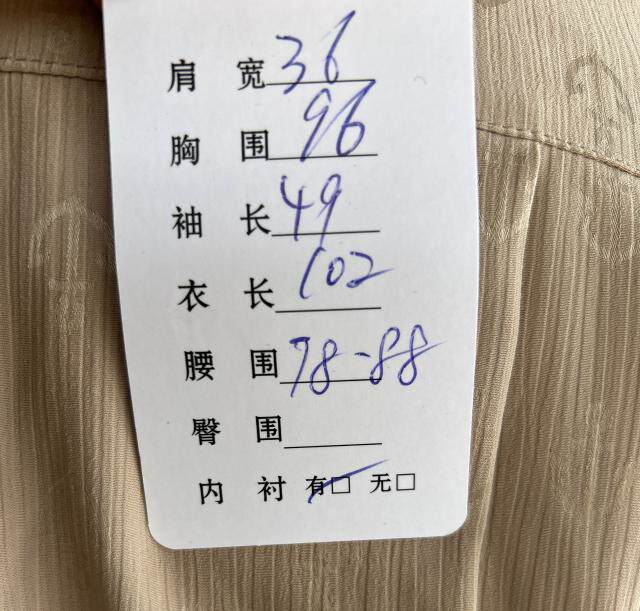 肩 宽 36
胸 围 96
袖 长 49
衣 长 102
腰 围 78-88
臀 围
内 衬 有□ 无□